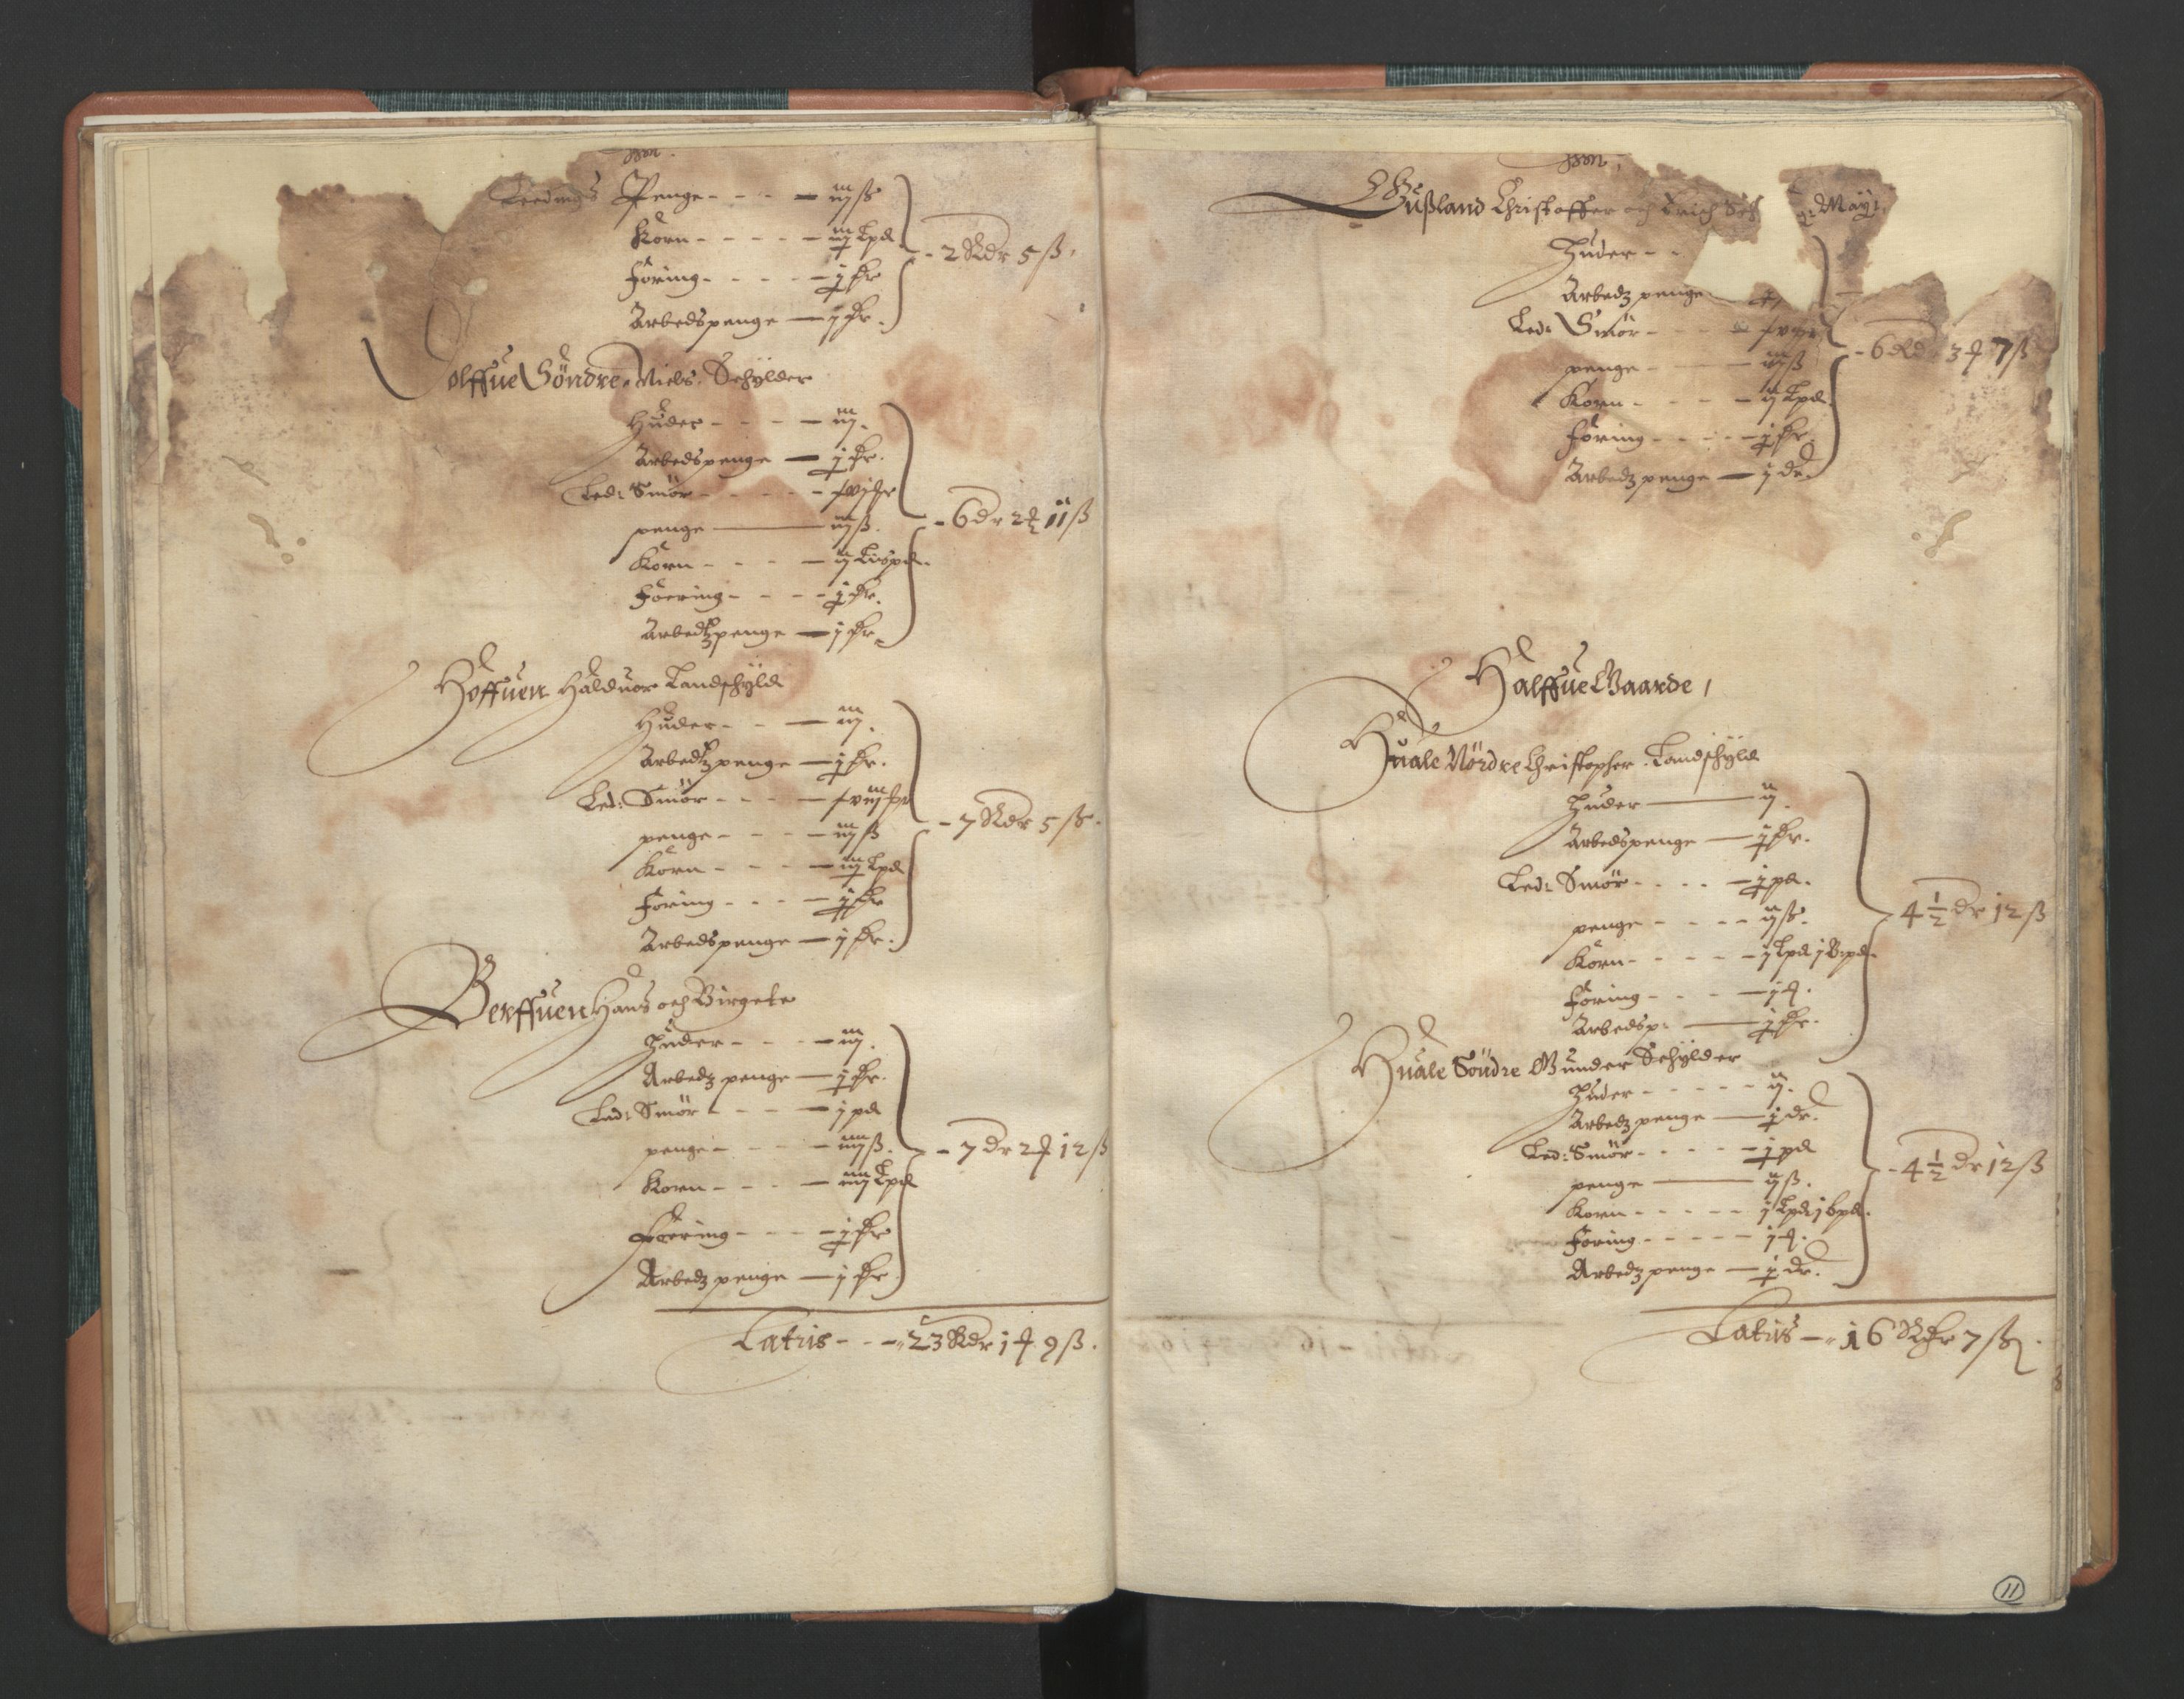 Leedings Penge - - - - iij ß
Korn - - - - - iij Lpd
föring - - - - j ɟr
Arbedspenge — j ɟr.
- 2 Rdr 5 ß.
olffue Söndre. Niels. Schylder
Huder - - - - iij.
Arbedspenge — j ɟr.
Led: Smör - - - - -
penge — iij ß.
Korn - - - - ij Lispd.
Foering - - - - j ɟr.
Arbedtzpenge — j ɟr.
- 6 dr 2 ɟ 11 ß
Hoffuen Halduor Landschyld
Huder - - - iij.
Arbedtzpenge — j ɟr.
Led: Smör - - - -
penge - - - - iij ß
Korn - - - - iij Lpd
Föring - - - j ɟr
Arbedspenge — j ɟr.
- 7 Rdr 5 ß.
Berffuen Hans och Birgete
Huder - - - - iij.
Arbedz penge — j ɟr.
Led: Smör - - - - j pd
penge - - - - iiij ß.
Korn - - - - iiij Lpd
Foering - - - - j ɟr
Arbedz penge — j ɟr
- 7 dr 2 ɟ 12 ß
Latus - - - 23 Rdr 1 ɟ 9 ß.
Gußland Christoffer och Erich
Huder - -
Arbedz penge
Led: Smör - - - -
penge - — iij ß
Korn - - - - ij Lpd.
föring - - - - j ɟr
Arbedz penge — j dr.
- 6 Rd 3 ɟ 7 ß
Halffue Gaarde /
Huale Nördre Christopher. Landschyld
Huder — ij.
Arbedspenge — j ɟr.
Led: Smör - - - - j pd.
penge - - - - ij ß.
Korn - - - - - j Lpd j Bpd.
Föring - - - - j ɟ.
Arbedsp: — j ɟr.
4 1/2 dr 12 ß
Huale Söndre Gunder Schylder
Huder - - - - - ij.
Arbedz penge — j dr.
Led: Smör - - - - - j pd
penge — ij ß.
Korn - - - - - j Lpd j bpd.
Föring - - - - - j ɟ.
Arbedz penge — j dr.
- 4 1/2 dr 12 ß
Latus — 16 Rdr 7 ß
11